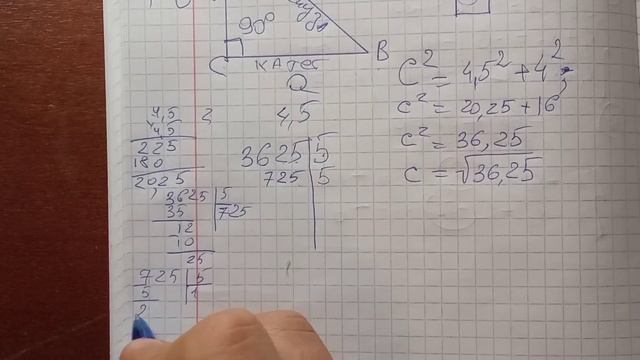 90°
C
B
катет
a
4,5
C² = 4,5² + 4²
c² = 20,25 + 16
c² = 36,25
c = √36,25
4,5
4,5
225
180
2025
3625 5
725 5
3625 5
35 725
12
10
25
725 5
5 1
2